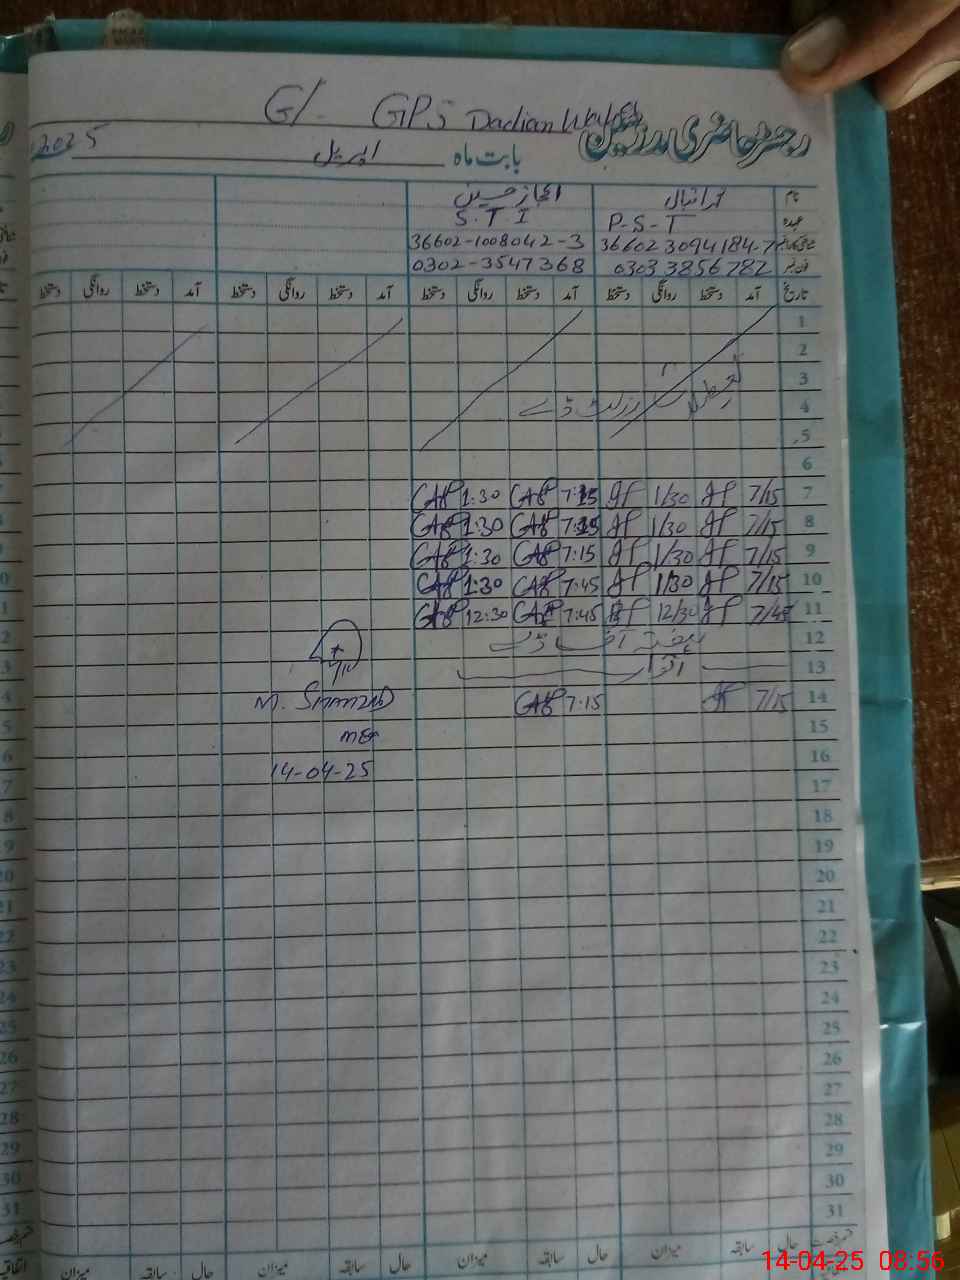 G/- GPS Dadian Wali
رجسٹر حاضری مدرسین
بابت ماہ اپریل 2025
نام محمد اقبال اعجاز حسین
عہدہ P-S-T S.T.I
36602 3094184-7 36602-1008042-3
فون نمبر 0303 3856782 0302-3547368
تاریخ آمد دستخط روانگی دستخط آمد دستخط روانگی دستخط آمد دستخط روانگی دستخط آمد دستخط روانگی دستخط
1
2
3 تعطیلات
4 رزلٹ ڈے
5
6
7 7/15 1/30 7:15 1:30
8 7/15 1/30 7:15 1:30
9 7/15 1/30 7:15 1:30
10 7/15 1/30 7:45 1:30
11 7/45 12/30 7:45 12:30
12 ہفتہ آف ڈے
13 اتوار
14 7/15 7:15
15
16
14-04-25
17
18
19
20
21
22
23
24
25
26
27
28
29
30
31
حال سابقہ میزان حال سابقہ میزان حال سابقہ میزان حال سابقہ میزان
14-04-25 08:56